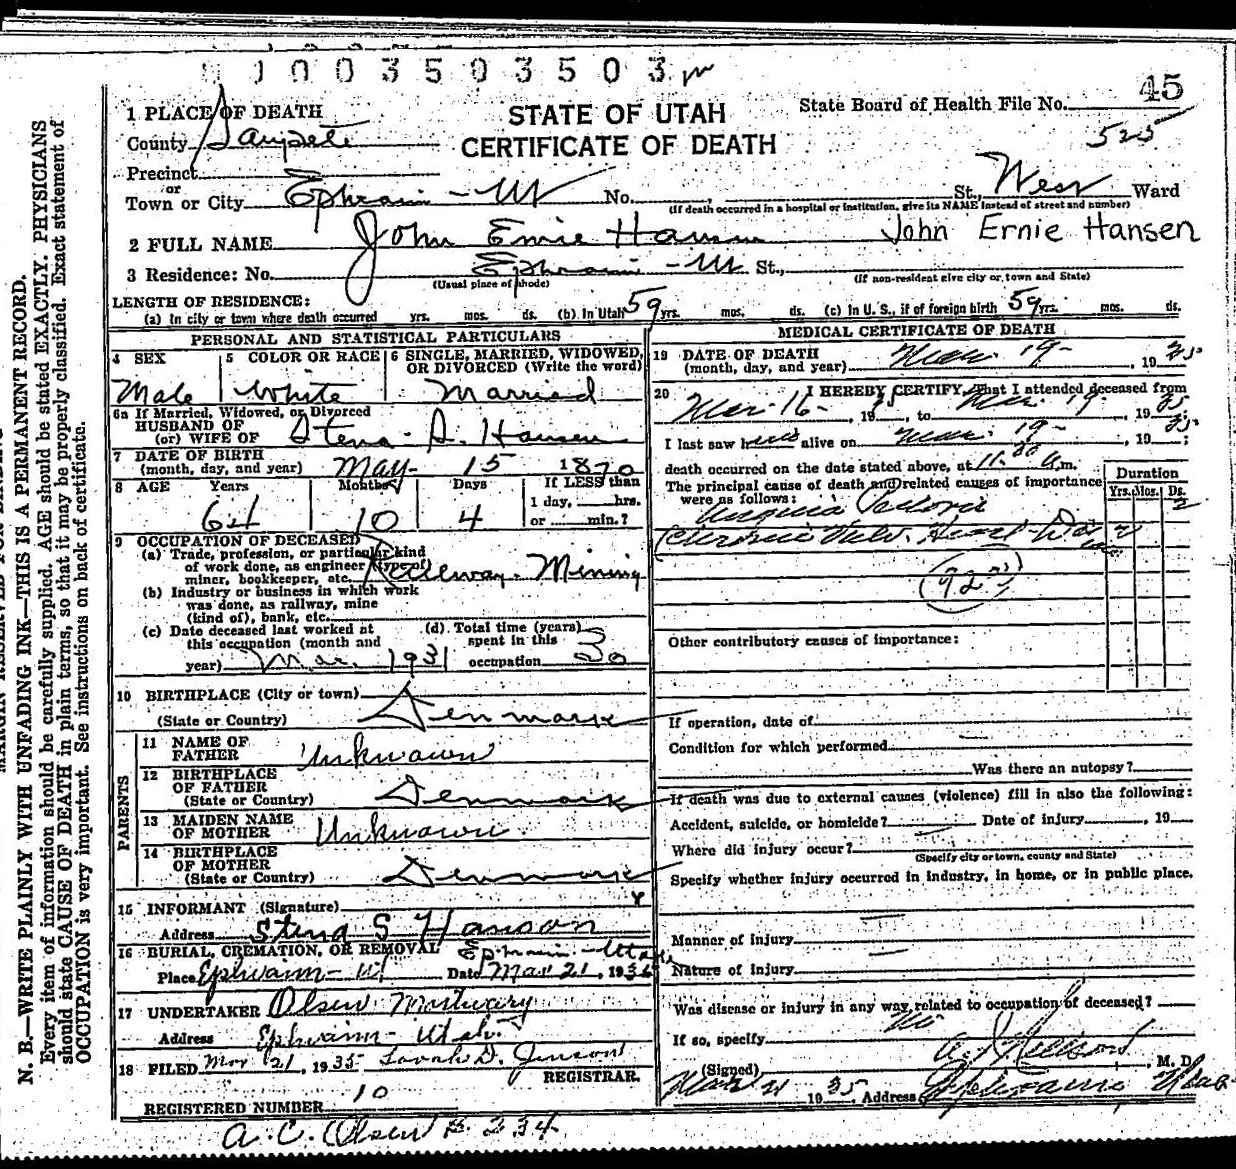 1003503503
45
1 PLACE OF DEATH
STATE OF UTAH
State Board of Health File No.
County Sanpete
CERTIFICATE OF DEATH
525
Precinct
or
Town or City Ephraim - Ut No. St., West Ward
(If death occurred in a hospital or institution, give its NAME instead of street and number)
2 FULL NAME John Ernie Hansen John Ernie Hansen
3 Residence: No. Ephraim - Ut St.,
(Usual place of abode) (If non-resident give city or town and State)
LENGTH OF RESIDENCE:
(a) In city or town where death occurred yrs. mos. ds. (b) In Utah 59 yrs. mos. ds. (c) In U. S., if of foreign birth 59 yrs. mos. ds.
PERSONAL AND STATISTICAL PARTICULARS
4 SEX 5 COLOR OR RACE 6 SINGLE, MARRIED, WIDOWED,
OR DIVORCED (Write the word)
Male White Married
6a If Married, Widowed, or Divorced
HUSBAND OF
(or) WIFE OF Stena S. Hansen
7 DATE OF BIRTH
(month, day, and year) May 15 1870
8 AGE Years Months Days If LESS than
1 day, hrs.
64 10 4 or min.?
9 OCCUPATION OF DECEASED
(a) Trade, profession, or particular kind
of work done, as engineer (type of)
miner, bookkeeper, etc. Railway - Mining
(b) Industry or business in which work
was done, as railway, mine
(kind of), bank, etc.
(c) Date deceased last worked at (d) Total time (years)
this occupation (month and spent in this
year) Mar. 1931 occupation 30
10 BIRTHPLACE (City or town)
(State or Country) Denmark
PARENTS
11 NAME OF
FATHER Unknown
12 BIRTHPLACE
OF FATHER
(State or Country) Denmark
13 MAIDEN NAME
OF MOTHER Unknown
14 BIRTHPLACE
OF MOTHER
(State or Country) Denmark
15 INFORMANT (Signature)
Address Stena S Hanson
Ephraim - Utah
16 BURIAL, CREMATION, OR REMOVAL
Place Ephraim - Ut Date Mar 21, 1935
17 UNDERTAKER Olsen Mortuary
Address Ephraim - Utah
18 FILED Mar 21, 1935 Sarah D. Jenson
REGISTRAR.
10
REGISTERED NUMBER
A. C. Olsen 334
MEDICAL CERTIFICATE OF DEATH
19 DATE OF DEATH
(month, day, and year) Mar. 19 - , 1935
20 I HEREBY CERTIFY, That I attended deceased from
Mar. 16 - , 1935, to Mar. 19, 1935;
I last saw him alive on Mar. 19 - , 1935;
death occurred on the date stated above, at 11.00 a.m.
The principal cause of death and related causes of importance
were as follows:
Duration
Yrs. Mos. Ds.
Angina Pectoris 2
Chronic Valv. Heart Dis 2
(92)
Other contributory causes of importance:
If operation, date of
Condition for which performed
Was there an autopsy?
If death was due to external causes (violence) fill in also the following:
Accident, suicide, or homicide? Date of injury , 19
Where did injury occur?
(Specify city or town, county and State)
Specify whether injury occurred in industry, in home, or in public place.
Manner of injury
Nature of injury
Was disease or injury in any way related to occupation of deceased?
No
If so, specify
(Signed) A J Nielson, M. D.
Mar 21 1935, Address Ephraim Utah
N. B.—WRITE PLAINLY WITH UNFADING INK—THIS IS A PERMANENT RECORD.
Every item of information should be carefully supplied. AGE should be stated EXACTLY. PHYSICIANS
should state CAUSE OF DEATH in plain terms, so that it may be properly classified. Exact statement of
OCCUPATION is very important. See instructions on back of certificate.